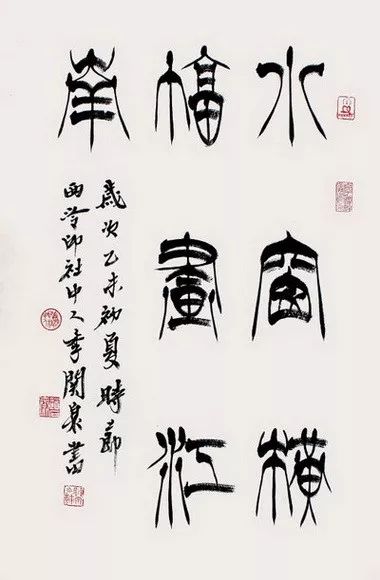 水窗橫
幅畫江
南
歲次乙未初夏時節
西泠印社中人季關泉書